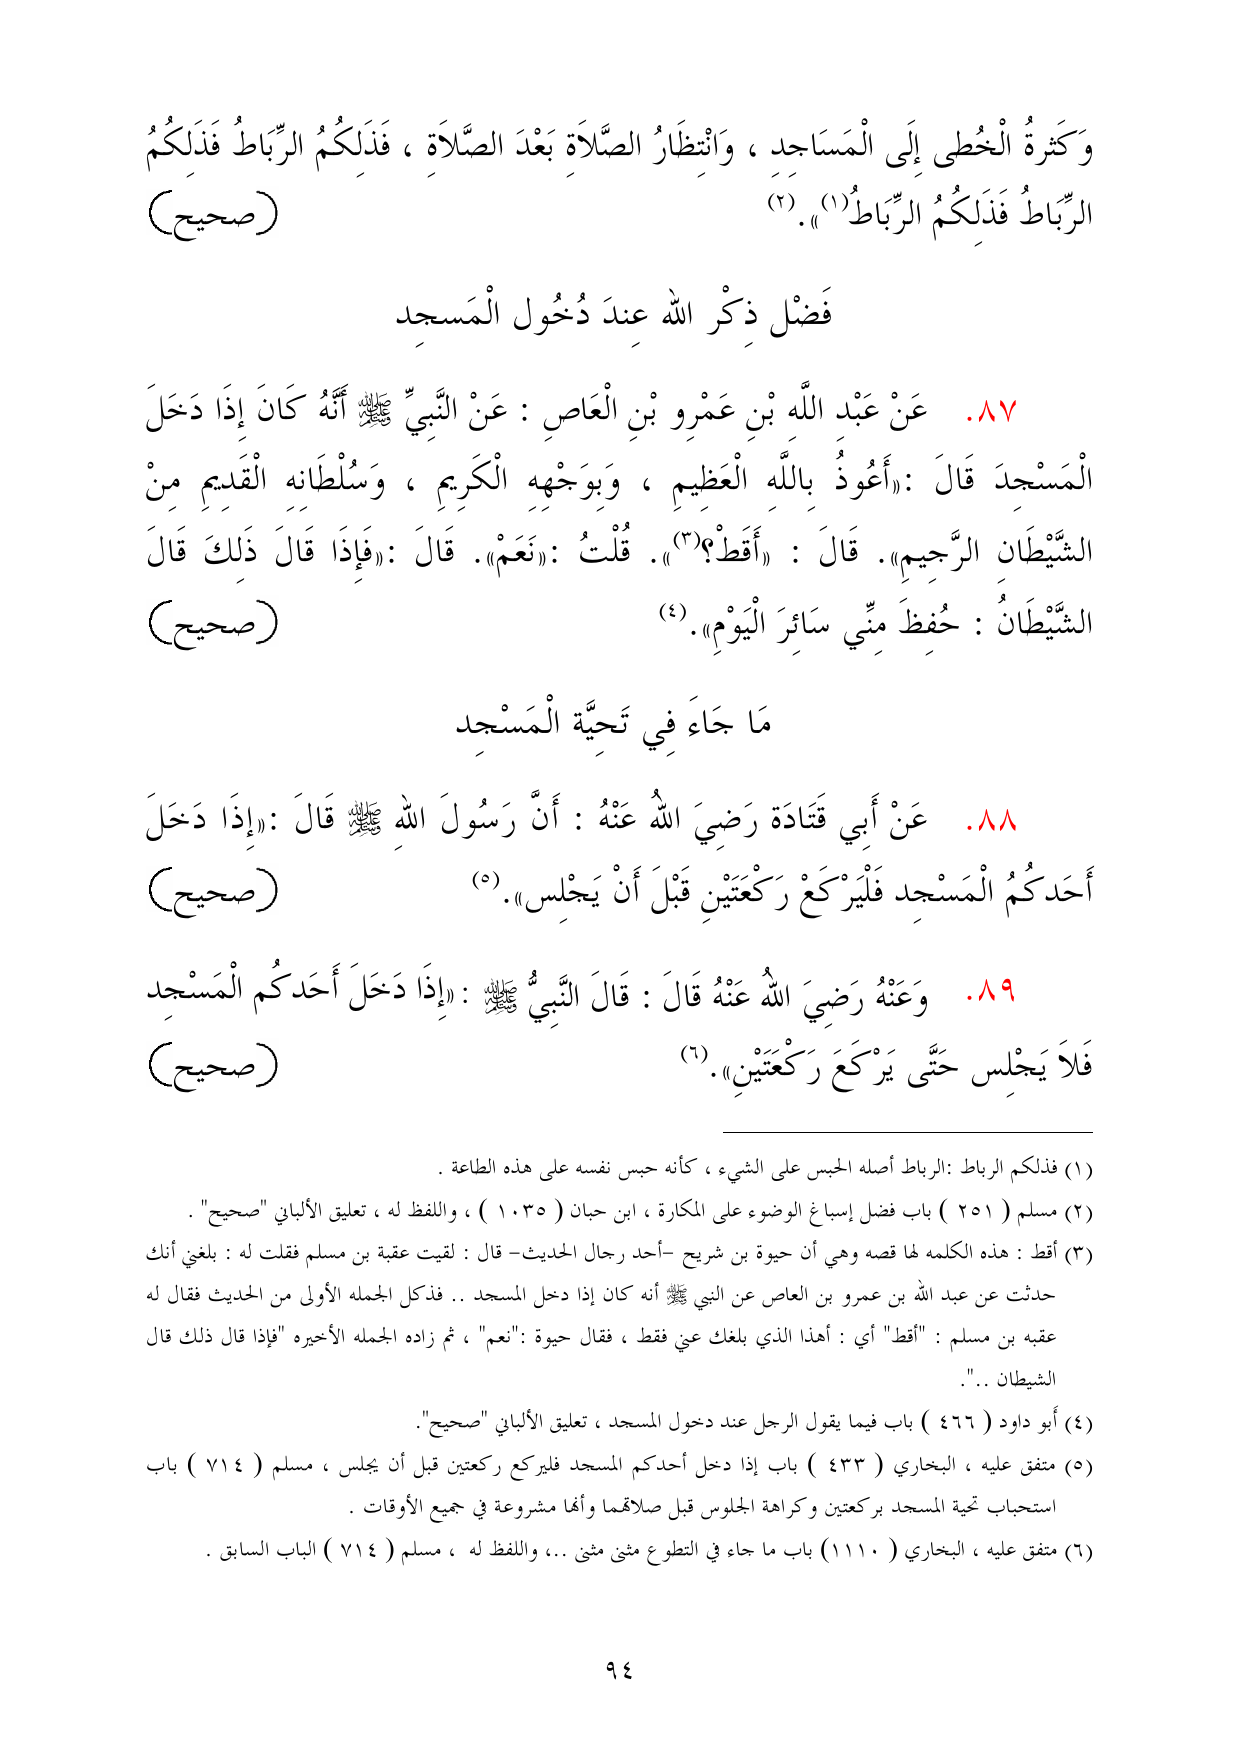 وَكَثرةُ الْخُطى إِلَى الْمَسَاجِدِ ، وَانْتِظَارُ الصَّلَاَةِ بَعْدَ الصَّلاَةِ ، فَذَلِكُمُ الرِّبَاطُ فَذَلِكُمُ
الرِّبَاطُ فَذَلِكُمُ الرِّبَاطُ(١)». (٢) (صحيح)
فَضْل ذِكْر الله عِندَ دُخُول الْمَسجِد
٨٧. عَنْ عَبْدِ اللَّهِ بْنِ عَمْرِو بْنِ الْعَاصِ : عَنْ النَّبِيِّ ﷺ أَنَّهُ كَانَ إِذَا دَخَلَ
الْمَسْجِدَ قَالَ :«أَعُوذُ بِاللَّهِ الْعَظِيمِ ، وَبِوَجْهِهِ الْكَرِيمِ ، وَسُلْطَانِهِ الْقَدِيمِ مِنْ
الشَّيْطَانِ الرَّجِيمِ». قَالَ : «أَقَطْ؟(٣)». قُلْتُ :«نَعَمْ». قَالَ :«فَإِذَا قَالَ ذَلِكَ قَالَ
الشَّيْطَانُ : حُفِظَ مِنِّي سَائِرَ الْيَوْمِ». (٤) (صحيح)
مَا جَاءَ فِي تَحِيَّة الْمَسْجِد
٨٨. عَنْ أَبِي قَتَادَة رَضِيَ اللهُ عَنْهُ : أَنَّ رَسُولَ اللهِ ﷺ قَالَ :«إِذَا دَخَلَ
أَحَدكُمُ الْمَسْجِد فَلْيَرْكَعْ رَكْعَتَيْنِ قَبْلَ أَنْ يَجْلِس». (٥) (صحيح)
٨٩. وَعَنْهُ رَضِيَ اللهُ عَنْهُ قَالَ : قَالَ النَّبِيُّ ﷺ :«إِذَا دَخَلَ أَحَدكُم الْمَسْجِد
فَلاَ يَجْلِس حَتَّى يَرْكَعَ رَكْعَتَيْنِ». (٦) (صحيح)
(١) فذلكم الرباط :الرباط أصله الحبس على الشيء ، كأنه حبس نفسه على هذه الطاعة .
(٢) مسلم ( ٢٥١ ) باب فضل إسباغ الوضوء على المكارة ، ابن حبان ( ١٠٣٥ ) ، واللفظ له ، تعليق الألباني "صحيح" .
(٣) أقط : هذه الكلمه لها قصه وهي أن حيوة بن شريح -أحد رجال الحديث- قال : لقيت عقبة بن مسلم فقلت له : بلغني أنك
حدثت عن عبد الله بن عمرو بن العاص عن النبي ﷺ أنه كان إذا دخل المسجد .. فذكل الجمله الأولى من الحديث فقال له
عقبه بن مسلم : "أقط" أي : أهذا الذي بلغك عني فقط ، فقال حيوة :"نعم" ، ثم زاده الجمله الأخيره "فإذا قال ذلك قال
الشيطان ..".
(٤) أَبو داود ( ٤٦٦ ) باب فيما يقول الرجل عند دخول المسجد ، تعليق الألباني "صحيح".
(٥) متفق عليه ، البخاري ( ٤٣٣ ) باب إذا دخل أحدكم المسجد فليركع ركعتين قبل أن يجلس ، مسلم ( ٧١٤ ) باب
استحباب تحية المسجد بركعتين وكراهة الجلوس قبل صلاتهما وأنها مشروعة في جميع الأوقات .
(٦) متفق عليه ، البخاري ( ١١١٠) باب ما جاء في التطوع مثنى مثنى ..، واللفظ له ، مسلم ( ٧١٤ ) الباب السابق .
٩٤